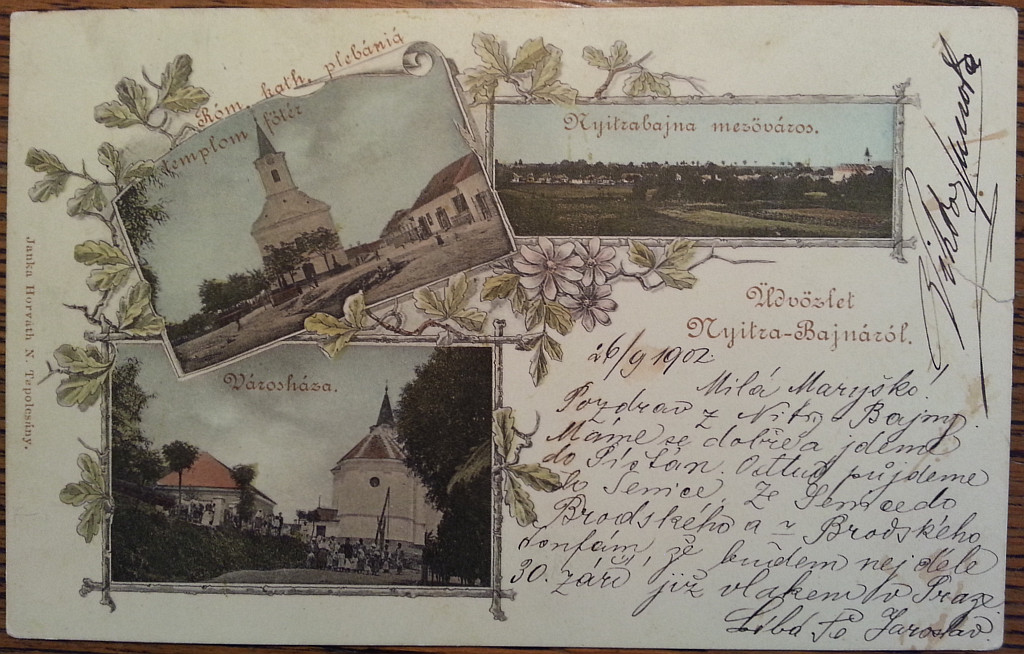 Róm. kath. plebániá
templom főtér
Nyitrabajna mezőváros.
Üdvözlet
Nyitra-Bajnáról.
Városháza.
Janka Horváth N. Tapolcsány.
26/9 1902
Milá Maryško!
Pozdrav z Nitry Bajny
Máme se dobře a jdeme
do Pístán. Odtud půjdeme
do Senice. Ze Senice do
Brodského a z Brodského
doufám, že budem nej déle
30. září již vlakem v Praze
Líbá Tě Jaroslav.